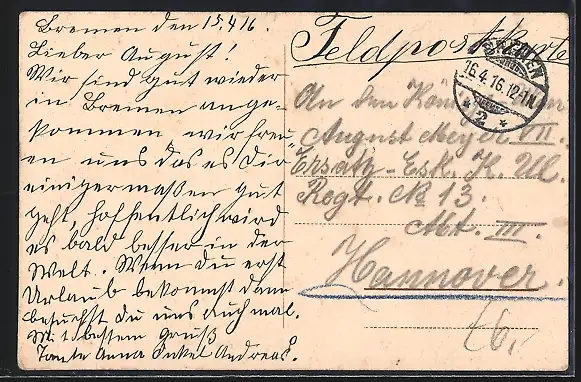 Bremen den 15.4 16.
Lieber August!
Wir sind gut wieder
in Bremen ange-
kommen wir freu-
en uns das es Dir
einigermaßen gut
geht, hoffentlich wird
es bald besser in der
Welt. Wenn Du erst
Urlaub bekommst dann
besuchst du uns auch mal.
Mit bestem Gruß
Tante Anna Onkel Andreas.
Feldpostkarte
BREMEN
16.4.16.12-1N.
* 2 *
An den
August Meyer VII.
Ersatz-Esk. K. Ul.
Regt. No 13.
Abt. III.
Hannover.